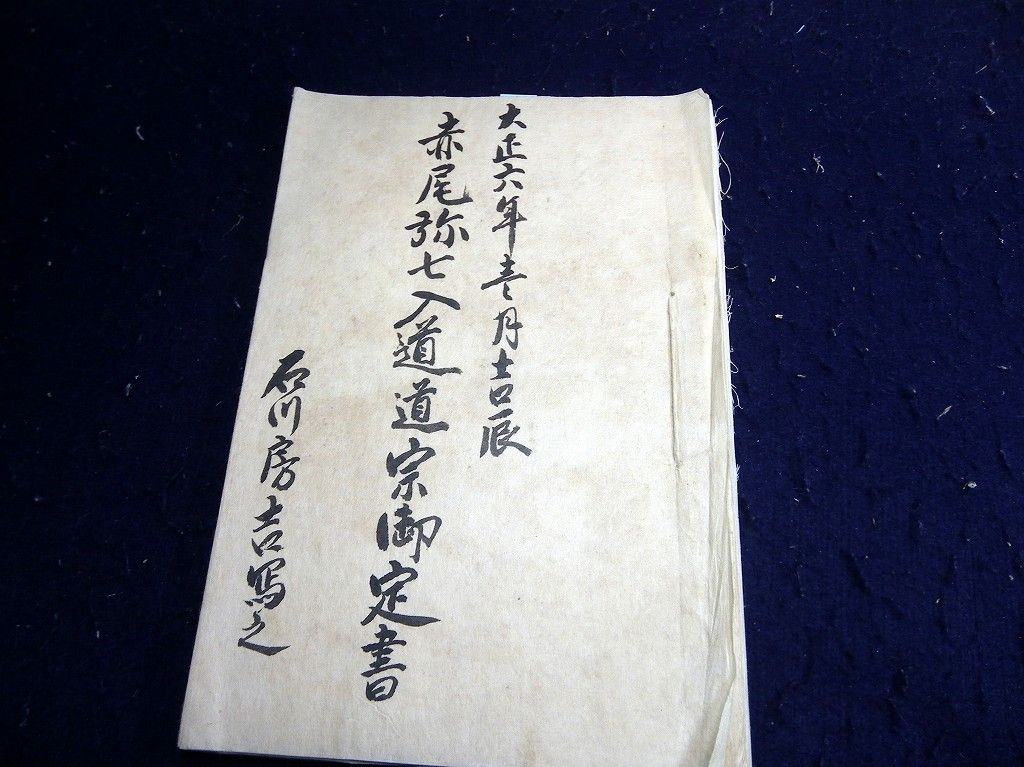 大正六年壱月吉辰
赤尾弥七入道道宗御定書
石川房吉写之